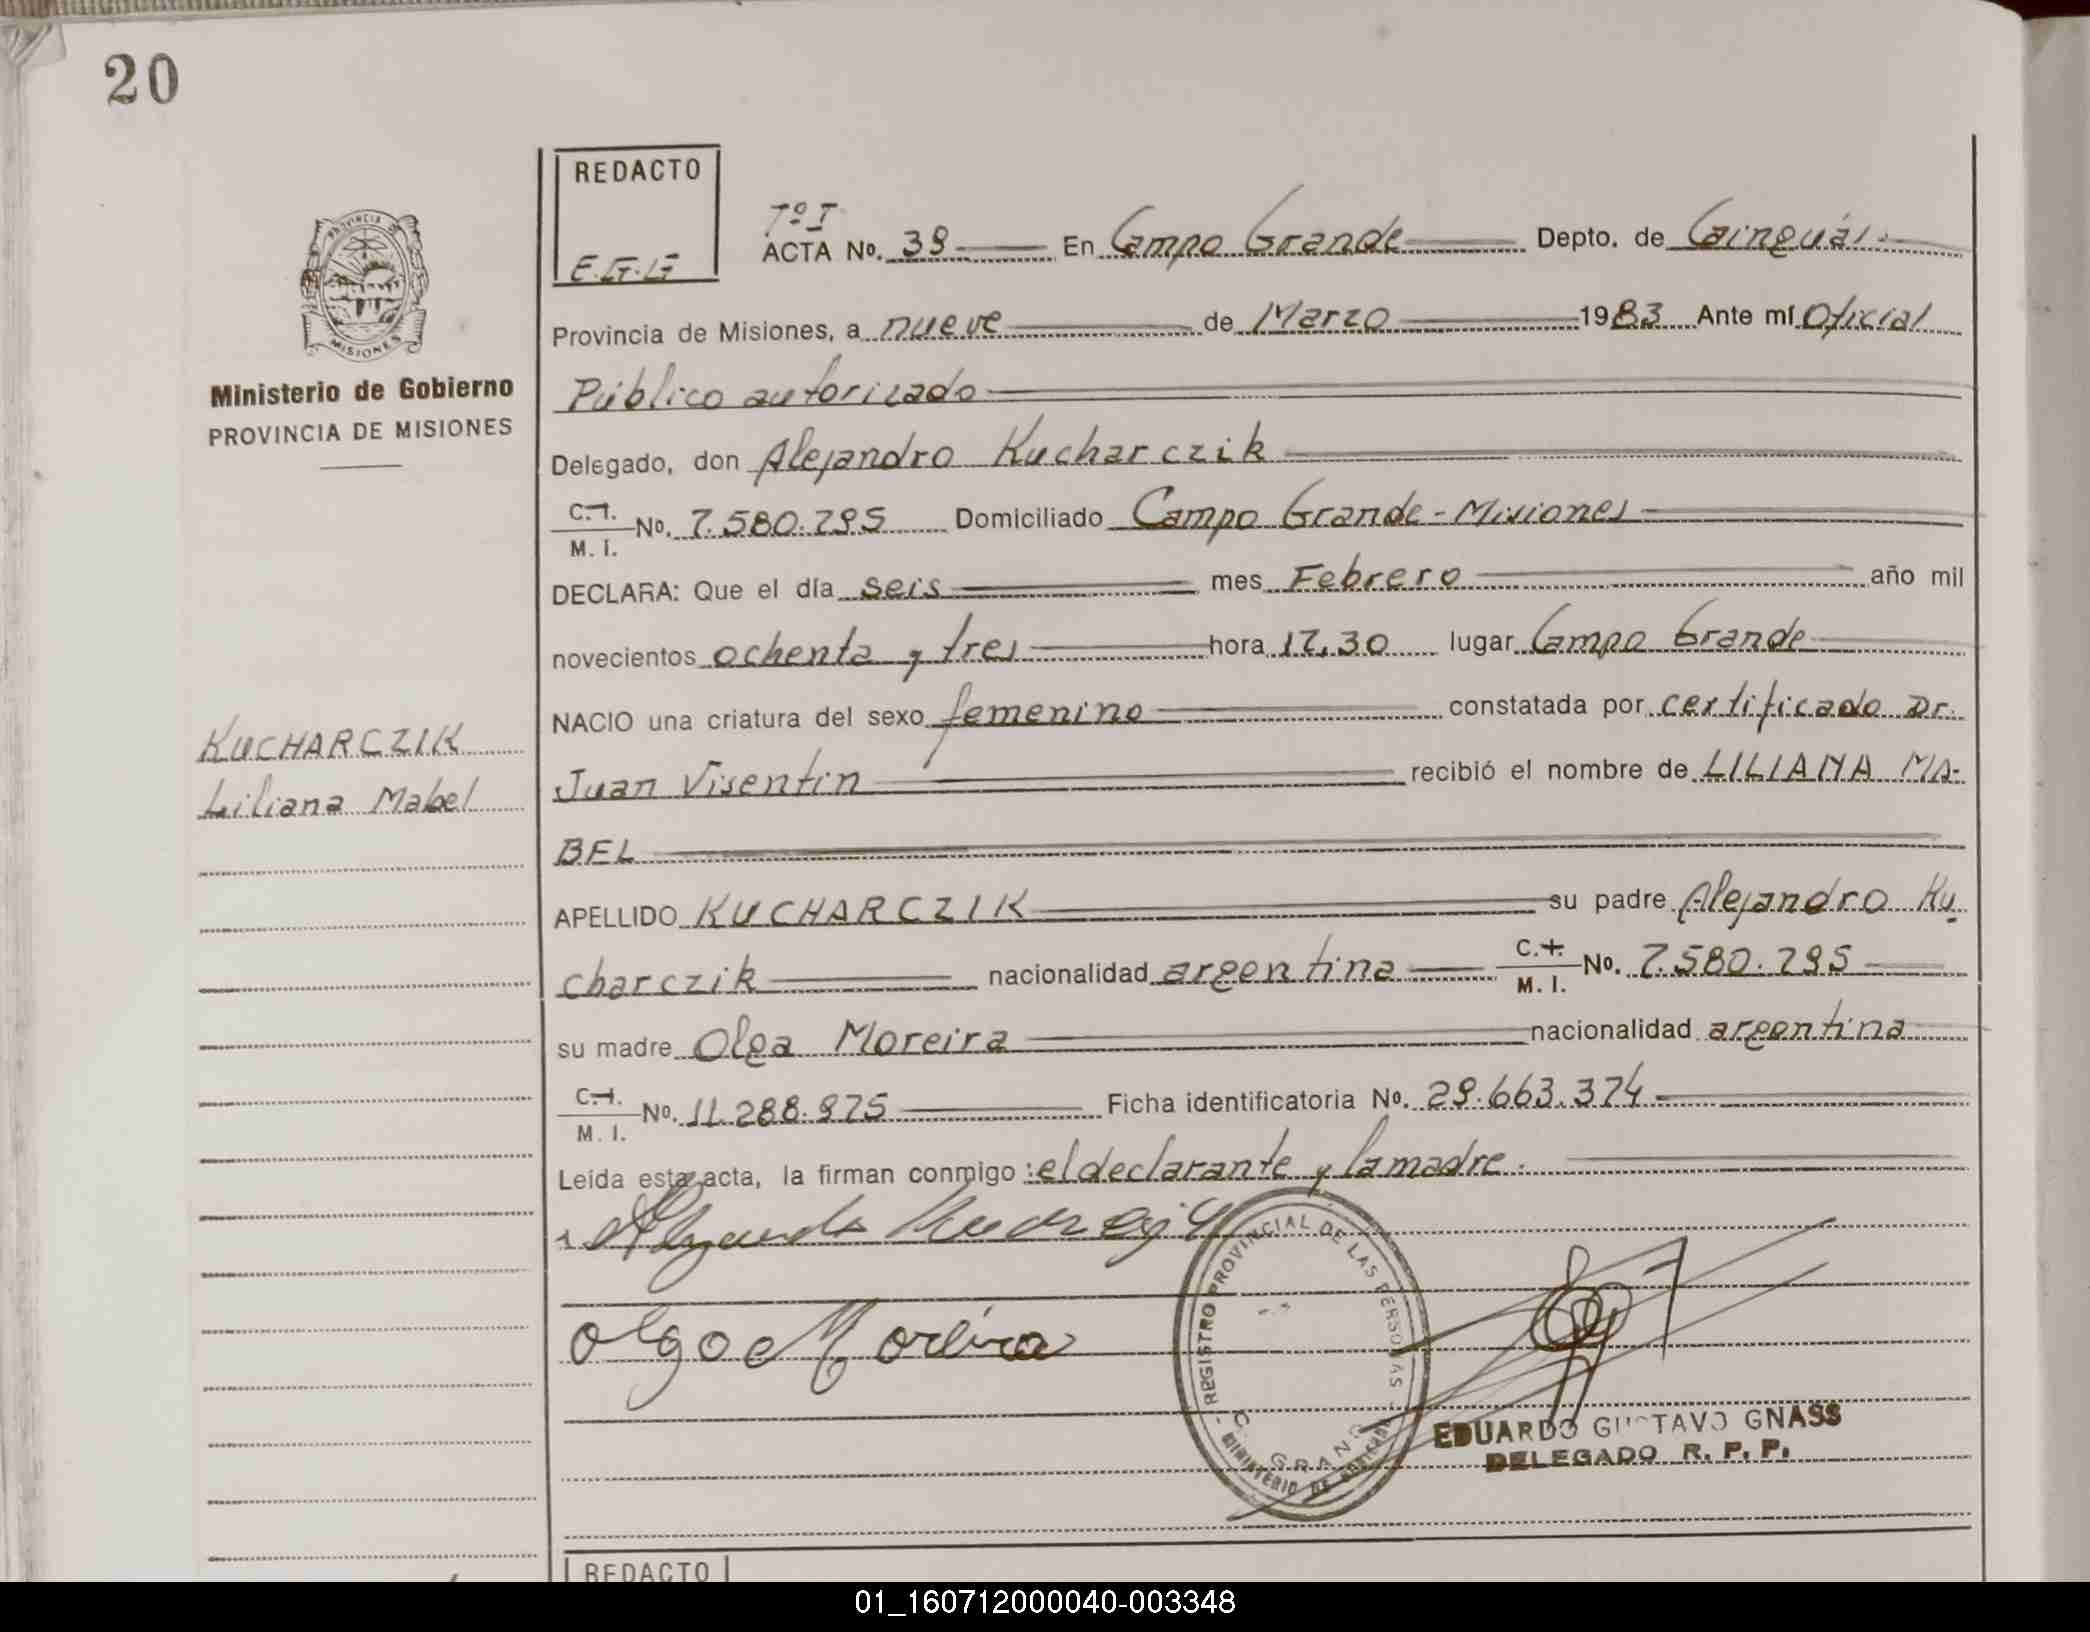 20
REDACTO
E.G.G
Tº I
ACTA No. 39 En Campo Grande Depto. de Cainguás
Provincia de Misiones, a nueve de Marzo 1983 Ante mí Oficial
Público autorizado
Delegado, don Alejandro Kucharczik
C.I. M. I. No. 7.580.795 Domiciliado Campo Grande - Misiones
DECLARA: Que el día seis mes Febrero año mil
novecientos ochenta y tres hora 17,30 lugar Campo Grande
NACIO una criatura del sexo femenino constatada por certificado Dr.
Juan Visentin recibió el nombre de LILIANA MA-
BEL
APELLIDO KUCHARCZIK su padre Alejandro Ku
charczik nacionalidad argentina C.I. M. I. No. 7.580.795
su madre Olga Moreira nacionalidad argentina
C.I. M. I. No. 11.288.975 Ficha identificatoria No. 29.663.374
Leída esta acta, la firman conmigo : el declarante y la madre.
Olga Moreira
PROVINCIA DE
MISIONES
Ministerio de Gobierno
PROVINCIA DE MISIONES
KUCHARCZIK
Liliana Mabel
REGISTRO PROVINCIAL DE LAS PERSONAS
MINISTERIO DE GOBIERNO
EDUARDO GUSTAVO GNASS
DELEGADO R. P. P.
REDACTO
01_160712000040-003348